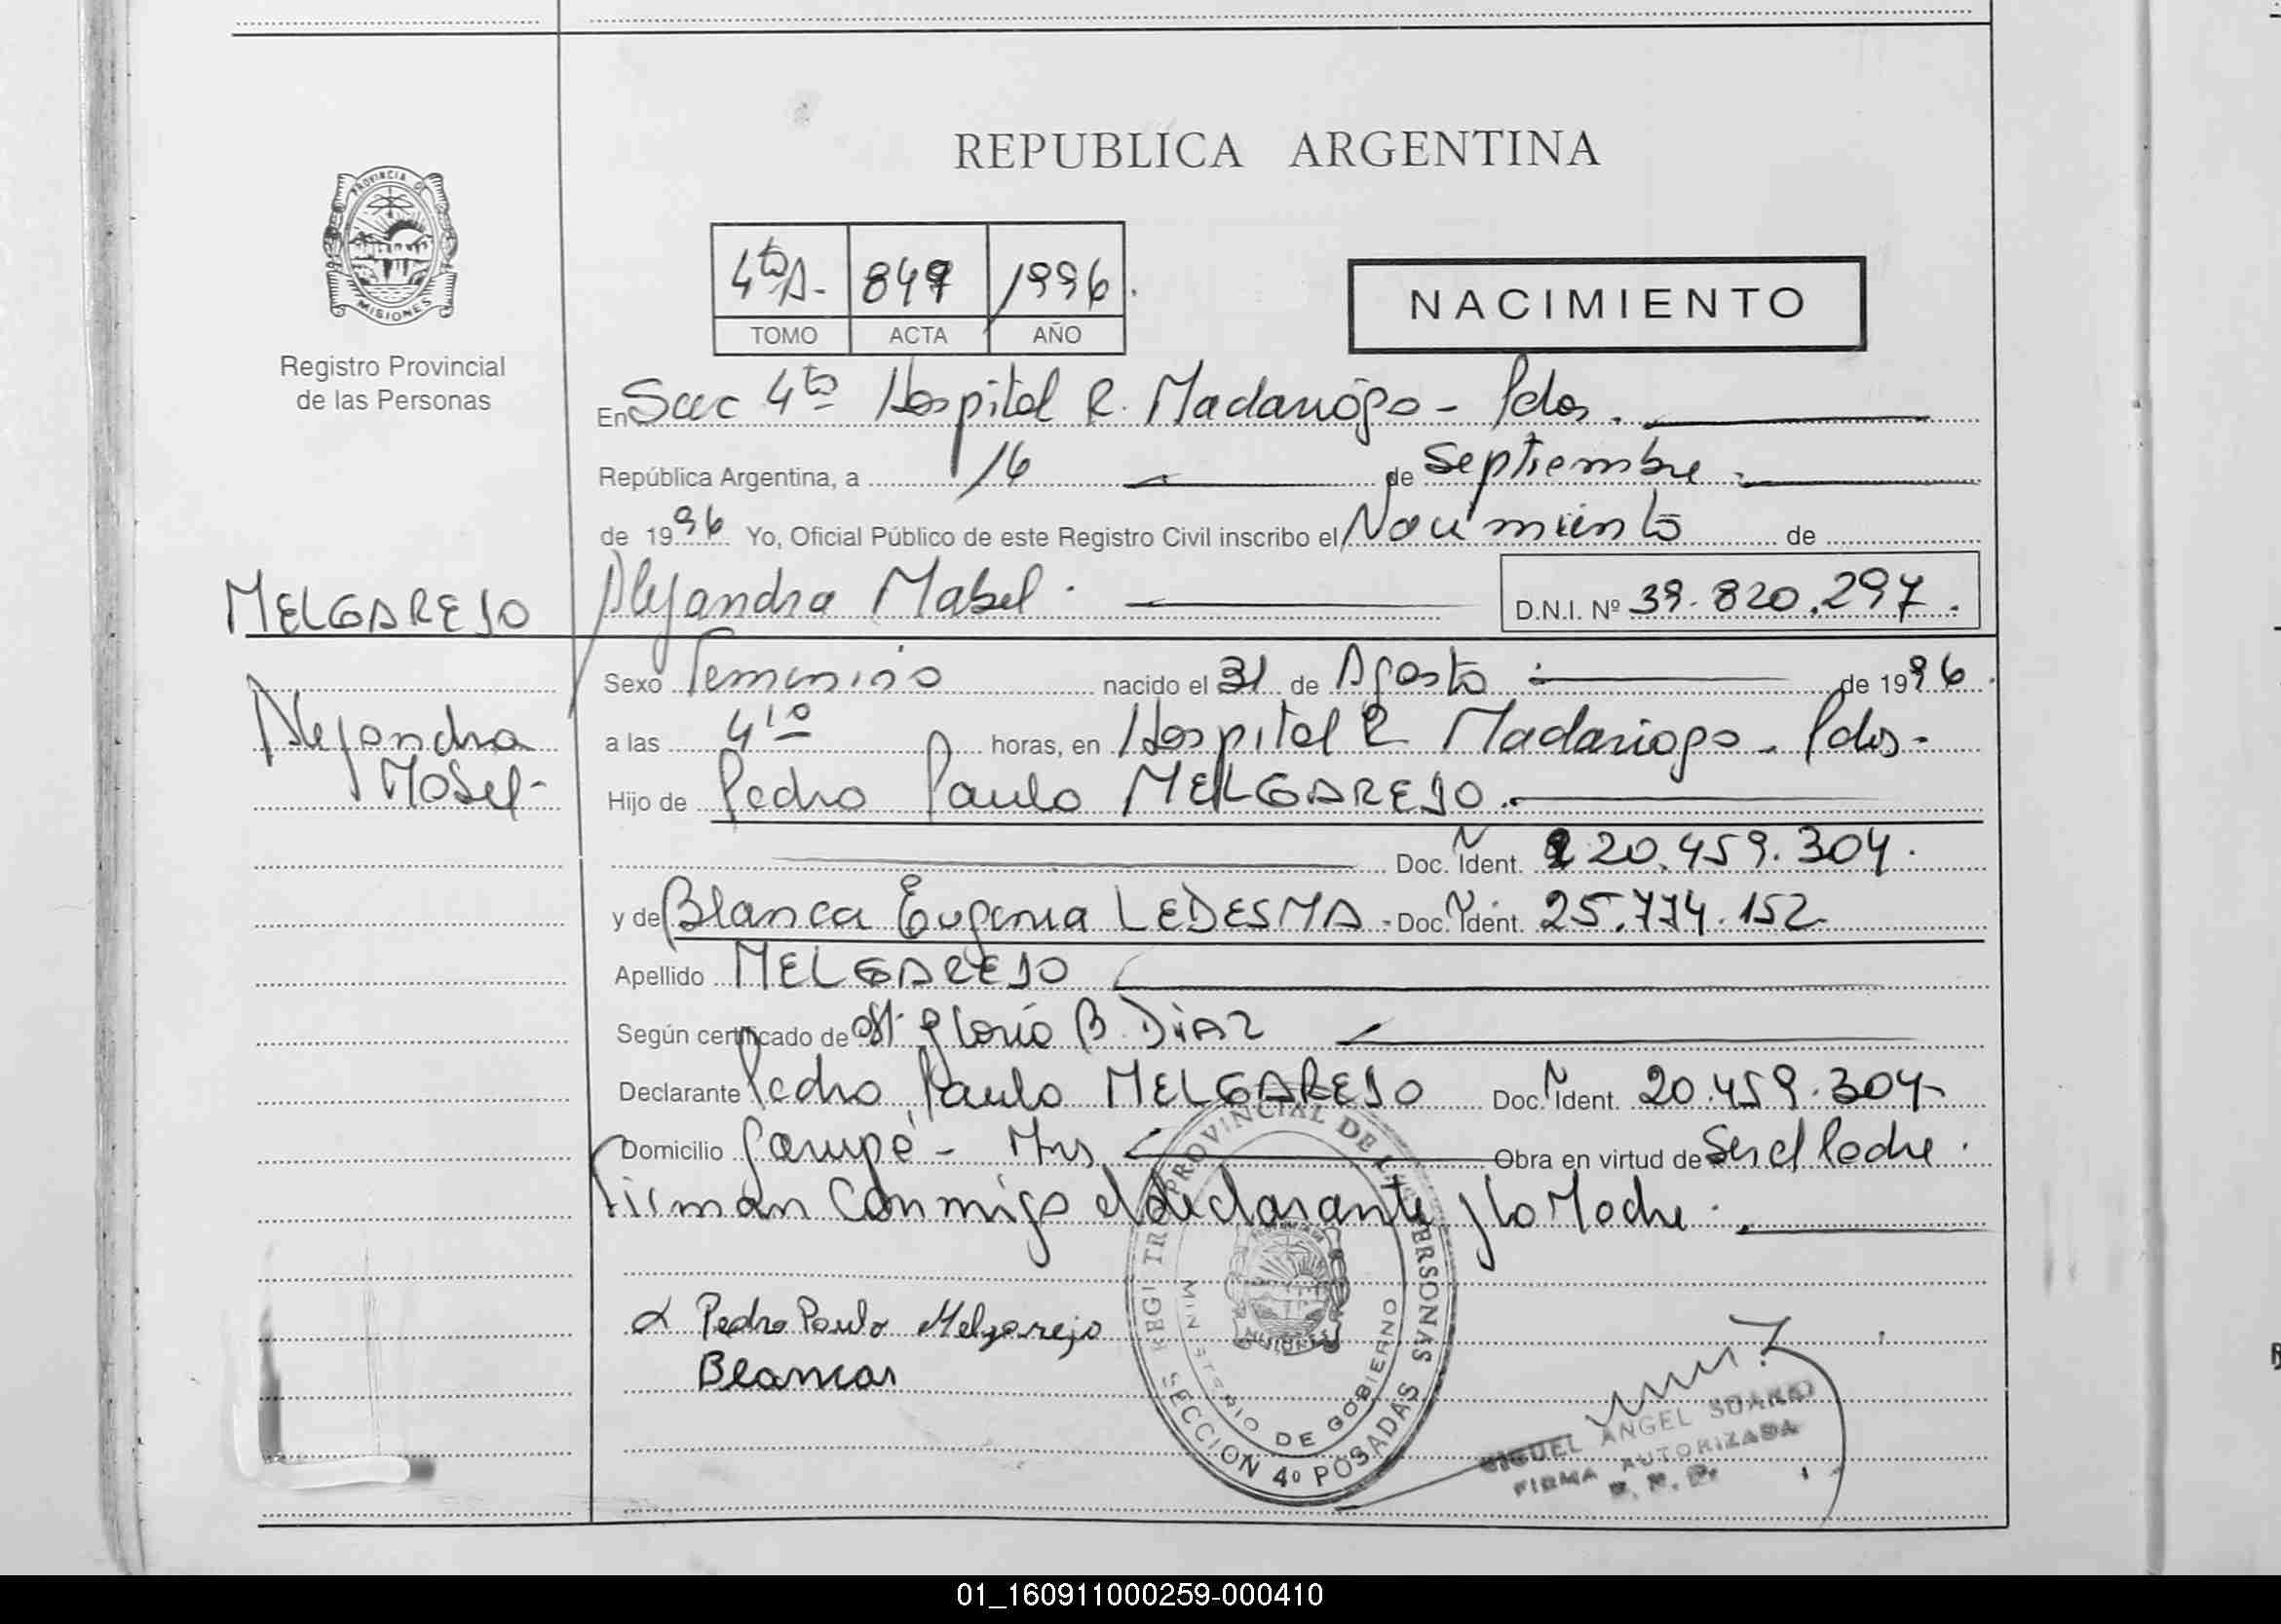 REPUBLICA ARGENTINA
PROVINCIA DE
MISIONES
Registro Provincial
de las Personas
4to A- 847 1996.
TOMO ACTA AÑO
NACIMIENTO
En Secc 4to Hospital R. Madariaga - Pdas.
República Argentina, a 16 de Septiembre
de 1996 Yo, Oficial Público de este Registro Civil inscribo el Nacimiento de
MELGAREJO Alejandra Mabel. D.N.I. Nº 39.820.297.
Sexo Femenino nacido el 31 de Agosto de 1996.
Alejandra a las 4 10 horas, en Hospital R Madariaga - Pdas-
Mabel- Hijo de Pedro Paulo MELGAREJO.
Doc. Ident. 20.459.304.
y de Blanca Eugenia LEDESMA - Doc. Ident. 25.774.152-
Apellido MELGAREJO
Según certificado de Obst. Gloria B. DiAZ
Declarante Pedro Paulo MELGAREJO Doc. Ident. 20.459.304-
Domicilio Garupé - Mns Obra en virtud de Ser el Padre.
Firman Conmigo el declarante y la Madre.
Pedro Paulo Melgarejo
Blancar
REGISTRO PROVINCIAL DE LAS PERSONAS
MINISTERIO DE GOBIERNO
MISIONES
SECCION 4º POSADAS
MIGUEL ANGEL
FIRMA AUTORIZADA
01_160911000259-000410